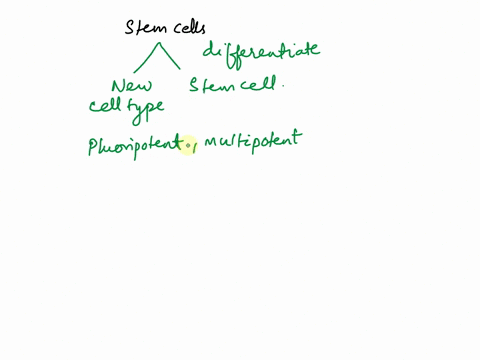 Stem cells
differentiate
New Stem cell.
cell type
Pluoripotent, multipotent